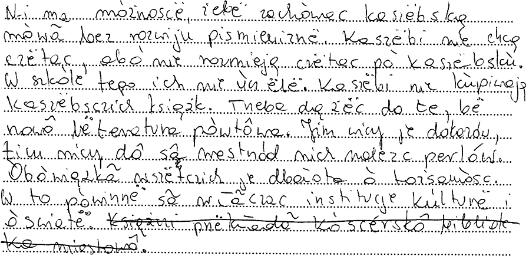 Ni ma możnoscë, żebë zachòwac kaszëbską
mòwã bez rozwiju pismieniznë. Kaszëbi nie chcą
czëtac, abò nie rozmieją czëtac pò kaszëbskù.
W szkòle tegò ich nie ùczëlë. Kaszëbi nie kùpiwają
kaszëbsczich ksążk. Trzeba dążëc do te, bë
nowô lëteratura pòwstôwa. Jim wicy je dokazu,
tim wicy dô sã mestnód nich nalezc perłów.
Òbòwiązkã wszëtczich je dbałota ò tożsamòsc.
W to pòwinnë sã włączac institucje kùlturë i
òswiatë. Ksążnicë przëkłôdã kòscérskô biblioteka
miastowô.